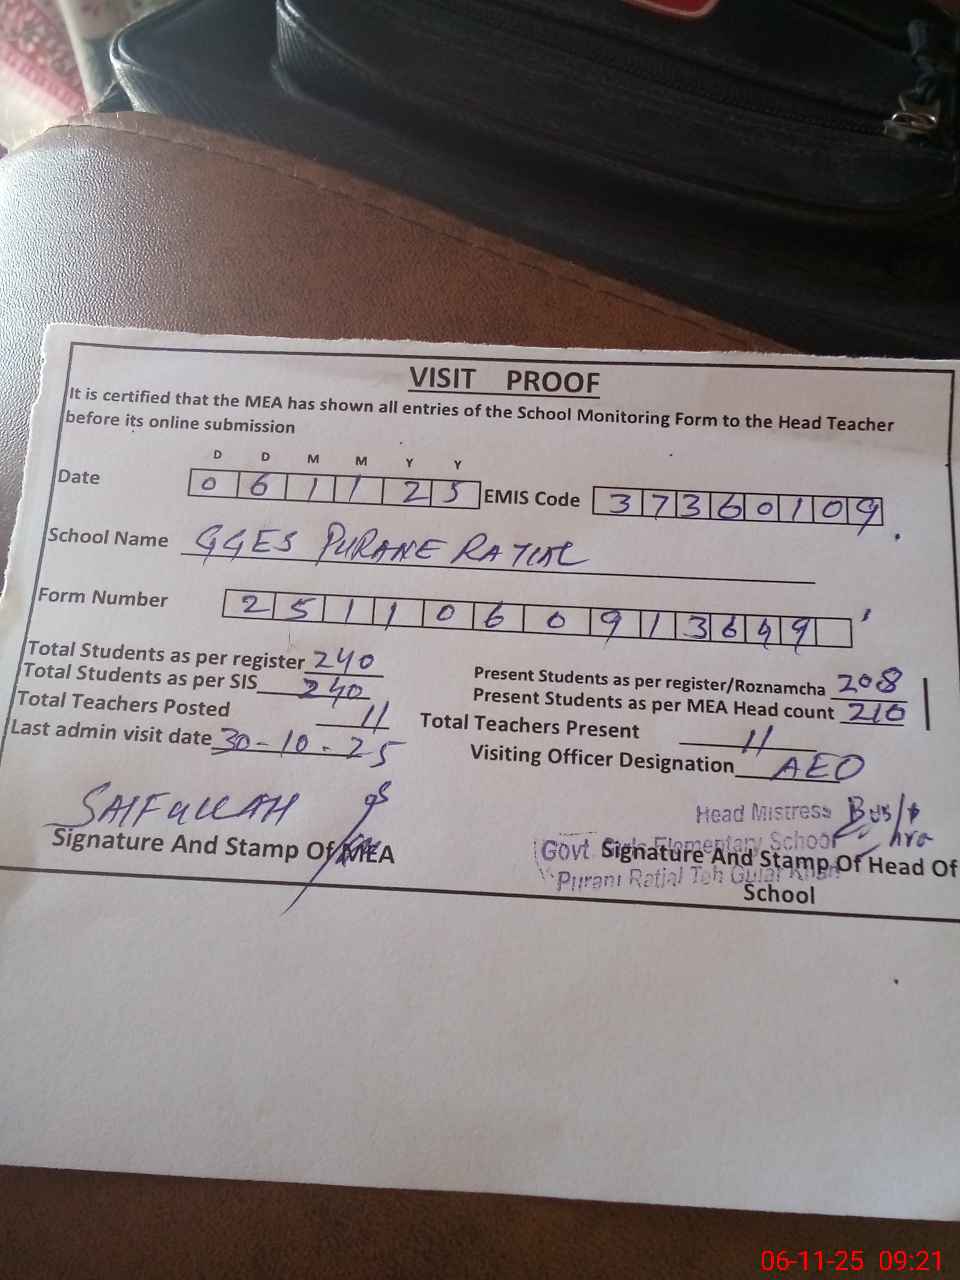 VISIT PROOF
It is certified that the MEA has shown all entries of the School Monitoring Form to the Head Teacher
before its online submission
D D M M Y Y
Date 0 6 1 1 2 5 EMIS Code 3 7 3 6 0 1 0 9
School Name GGES PURANE RATIAL
Form Number 2 5 1 1 0 6 0 9 1 3 6 4 9
Total Students as per register 240 Present Students as per register/Roznamcha 208
Total Students as per SIS 240 Present Students as per MEA Head count 210
Total Teachers Posted 11 Total Teachers Present 11
Last admin visit date 30-10-25 Visiting Officer Designation AEO
SAIFULLAH
Signature And Stamp Of MEA
Head Mistress
Govt Girls Elementary School
Purani Ratial Teh Gujar Khan
Signature And Stamp Of Head Of
School
06-11-25 09:21